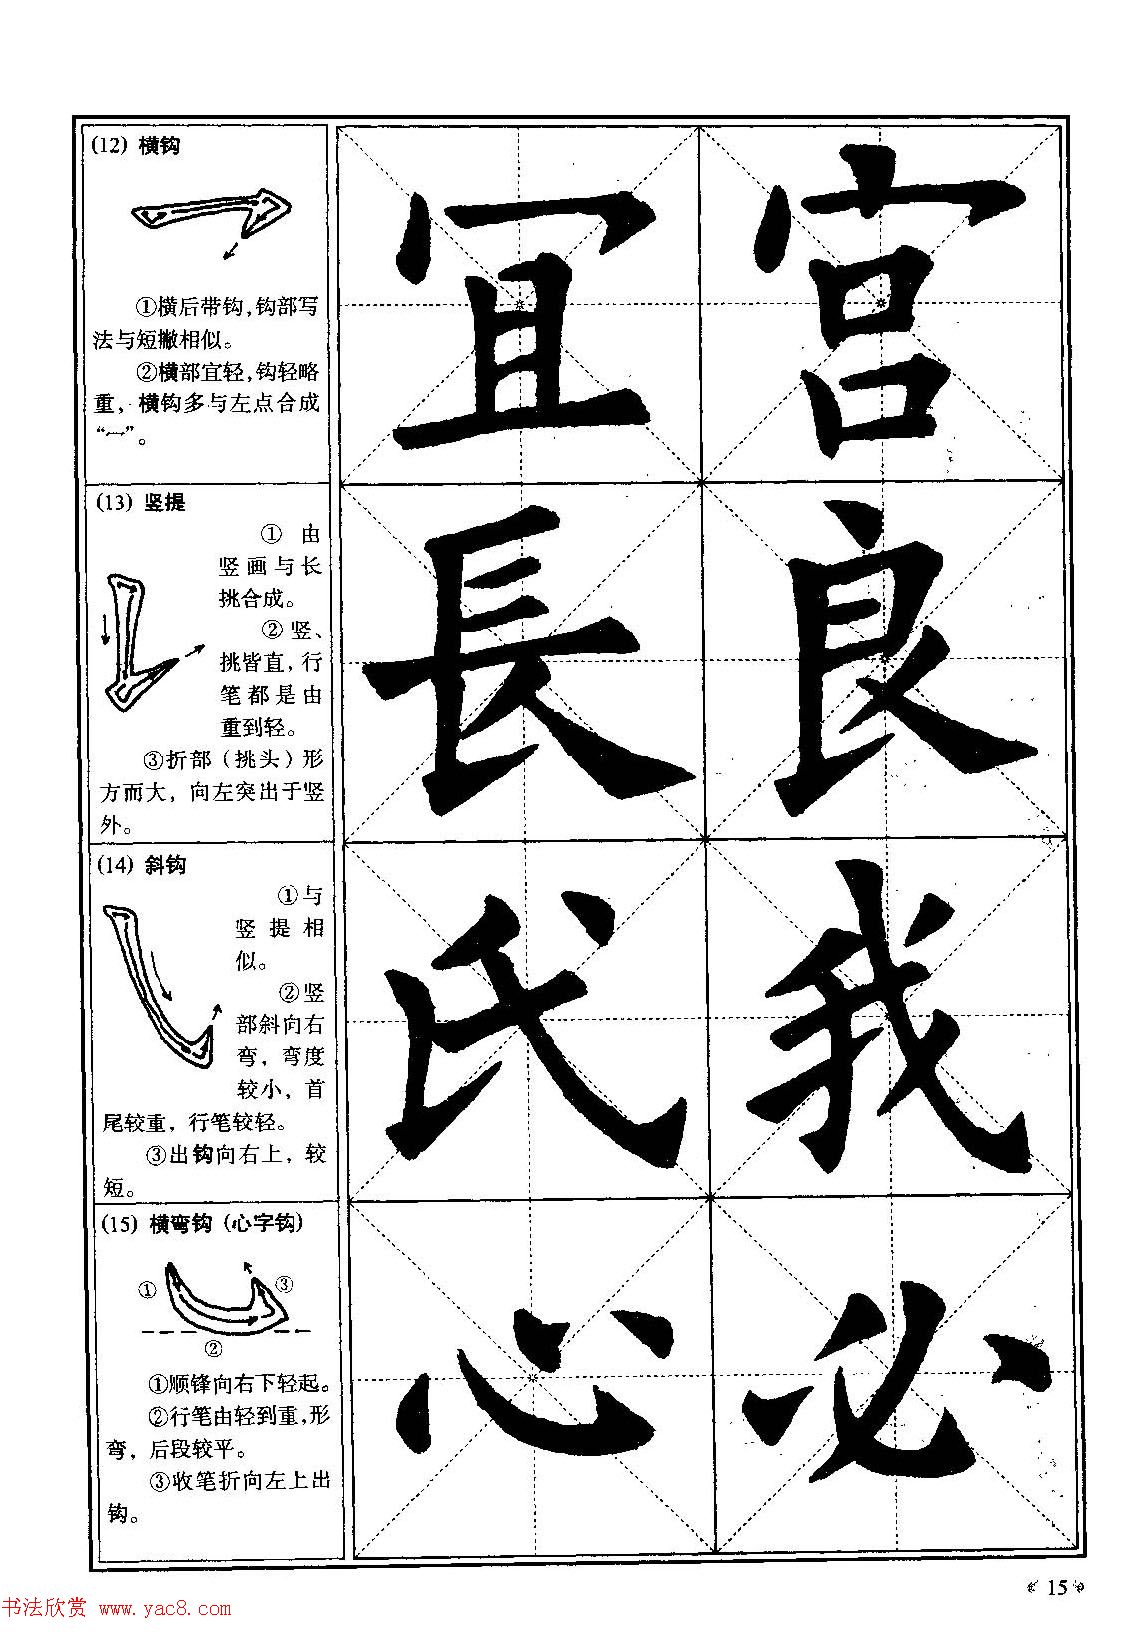 (12) 横钩
①横后带钩,钩部写
法与短撇相似。
②横部宜轻,钩轻略
重,横钩多与左点合成
“冖”。
宜 宫
(13) 竖提
① 由
竖画与长
挑合成。
②竖、
挑皆直,行
笔都是由
重到轻。
③折部(挑头)形
方而大,向左突出于竖
外。
長 良
(14) 斜钩
①与
竖提相
似。
②竖
部斜向右
弯,弯度
较小,首
尾较重,行笔较轻。
③出钩向右上,较
短。
氏 我
(15) 横弯钩(心字钩)
① ③
②
①顺锋向右下轻起。
②行笔由轻到重,形
弯,后段较平。
③收笔折向左上出
钩。
心 必
15
书法欣赏 www.yac8.com